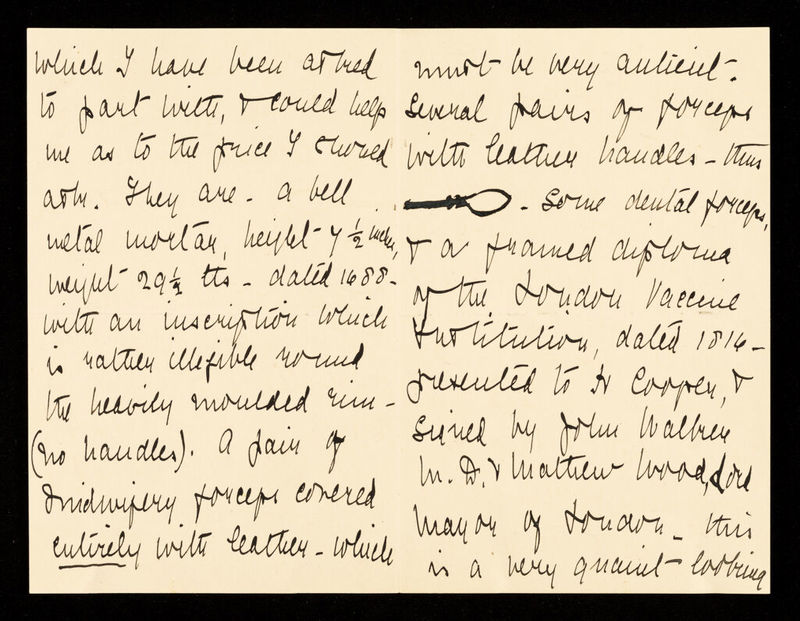 which I have been asked
to part with, & could help
me as to the price I should
ask. They are - a bell
metal mortar, height 7 1/2 inches,
weight 29 1/2 lbs - dated 1688 -
with an inscription which
is rather illegible round
the heavily moulded rim -
(no handles). A pair of
midwifery forceps covered
entirely with leather - which
must be very antient.
Several pairs of forceps
with leather handles - thus
- Some dental forceps,
& a framed diploma
of the London Vaccine
Institution, dated 1816 -
presented to Cooper, &
signed by John Walker
M.D. & Matthew Wood, Lord
Mayor of London - this
is a very quaint looking